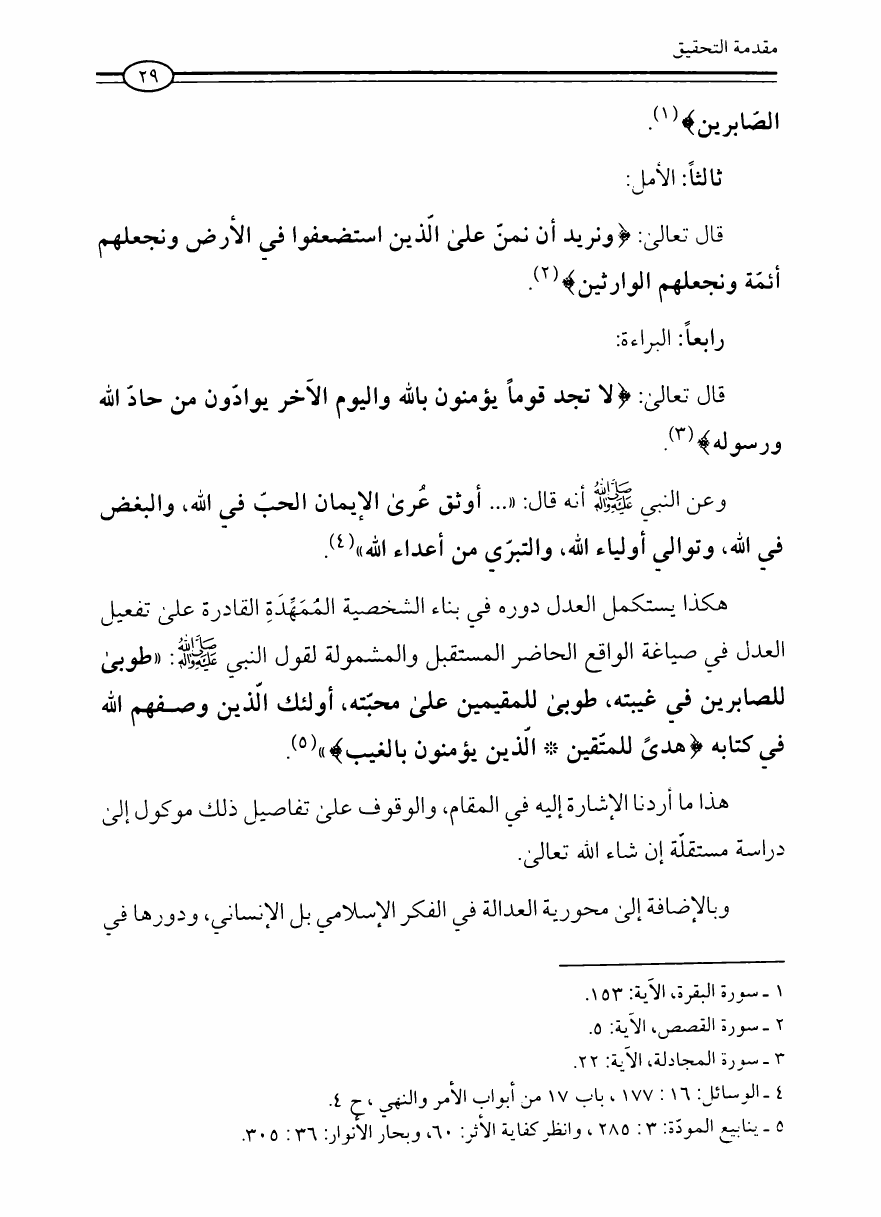 مقدمة التحقيق
٢٩
الصّابرين﴾(١).
ثالثاً: الأمل:
قال تعالىٰ: ﴿ونريد أن نمنّ علىٰ الّذين استضعفوا في الأرض ونجعلهم
أئمّة ونجعلهم الوارثين﴾(٢).
رابعاً: البراءة:
قال تعالىٰ: ﴿لا تجد قوماً يؤمنون بالله واليوم الآخر يوادّون من حادّ الله
ورسوله﴾(٣).
وعن النبي ﷺ أنه قال: «... أوثق عُرىٰ الإيمان الحبّ في الله، والبغض
في الله، وتوالي أولياء الله، والتبرّي من أعداء الله»(٤).
هكذا يستكمل العدل دوره في بناء الشخصية المُمَهِّدَةِ القادرة علىٰ تفعيل
العدل في صياغة الواقع الحاضر المستقبل والمشمولة لقول النبي ﷺ: «طوبىٰ
للصابرين في غيبته، طوبىٰ للمقيمين علىٰ محبّته، أولئك الّذين وصفهم الله
في كتابه ﴿هدىً للمتّقين * الّذين يؤمنون بالغيب﴾»(٥).
هذا ما أردنا الإشارة إليه في المقام، والوقوف علىٰ تفاصيل ذلك موكول إلىٰ
دراسة مستقلّة إن شاء الله تعالىٰ.
وبالإضافة إلىٰ محورية العدالة في الفكر الإسلامي بل الإنساني، ودورها في
١ ـ سورة البقرة، الآية: ١٥٣.
٢ ـ سورة القصص، الآية: ٥.
٣ ـ سورة المجادلة، الآية: ٢٢.
٤ ـ الوسائل: ١٦ : ١٧٧ ، باب ١٧ من أبواب الأمر والنهي ، ح ٤.
٥ ـ ينابيع المودّة: ٣ : ٢٨٥ ، وانظر كفاية الأثر: ٦٠، وبحار الأنوار: ٣٦ : ٣٠٥.